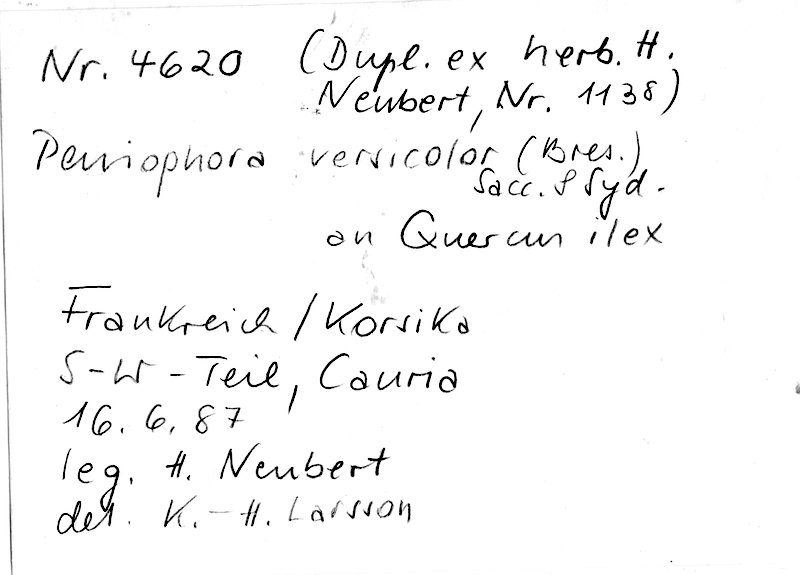 Nr. 4620 (Dupl. ex herb. H.
Neubert, Nr. 1138)
Peniophora versicolor (Bres.)
Sacc. & Syd.
an Quercus ilex
Frankreich/Korsika
S-W-Teil, Cauria
16. 6. 87
leg. H. Neubert
det. K.-H. Larsson